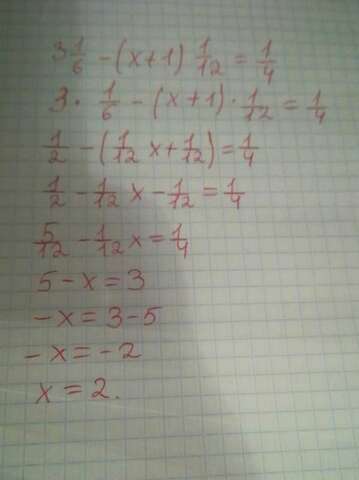 3 1/6 - (x+1) 1/12 = 1/4
3 · 1/6 - (x+1) · 1/12 = 1/4
1/2 - (1/12 x + 1/12) = 1/4
1/2 - 1/12 x - 1/12 = 1/4
5/12 - 1/12 x = 1/4
5 - x = 3
-x = 3-5
-x = -2
x = 2.